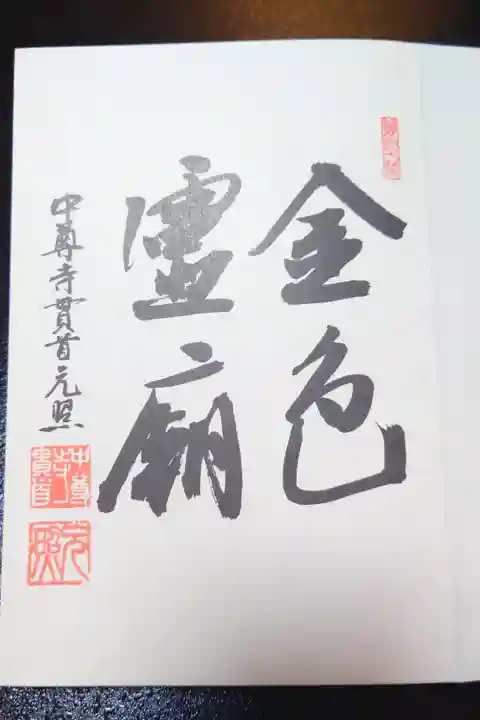 金色
靈廟
中尊寺貫首元照
中尊寺貫首
元照